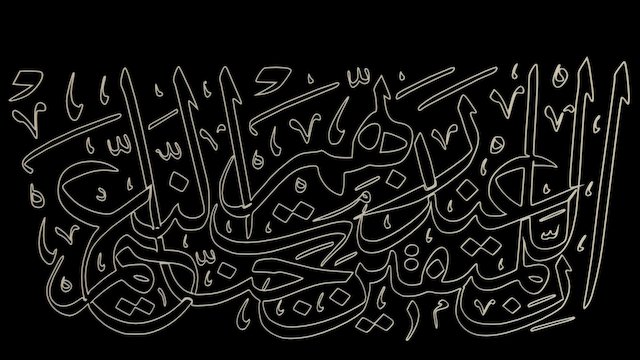 إِنَّ لِلْمُتَّقِينَ عِنْدَ رَبِّهِمْ جَنَّاتِ النَّعِيمِ